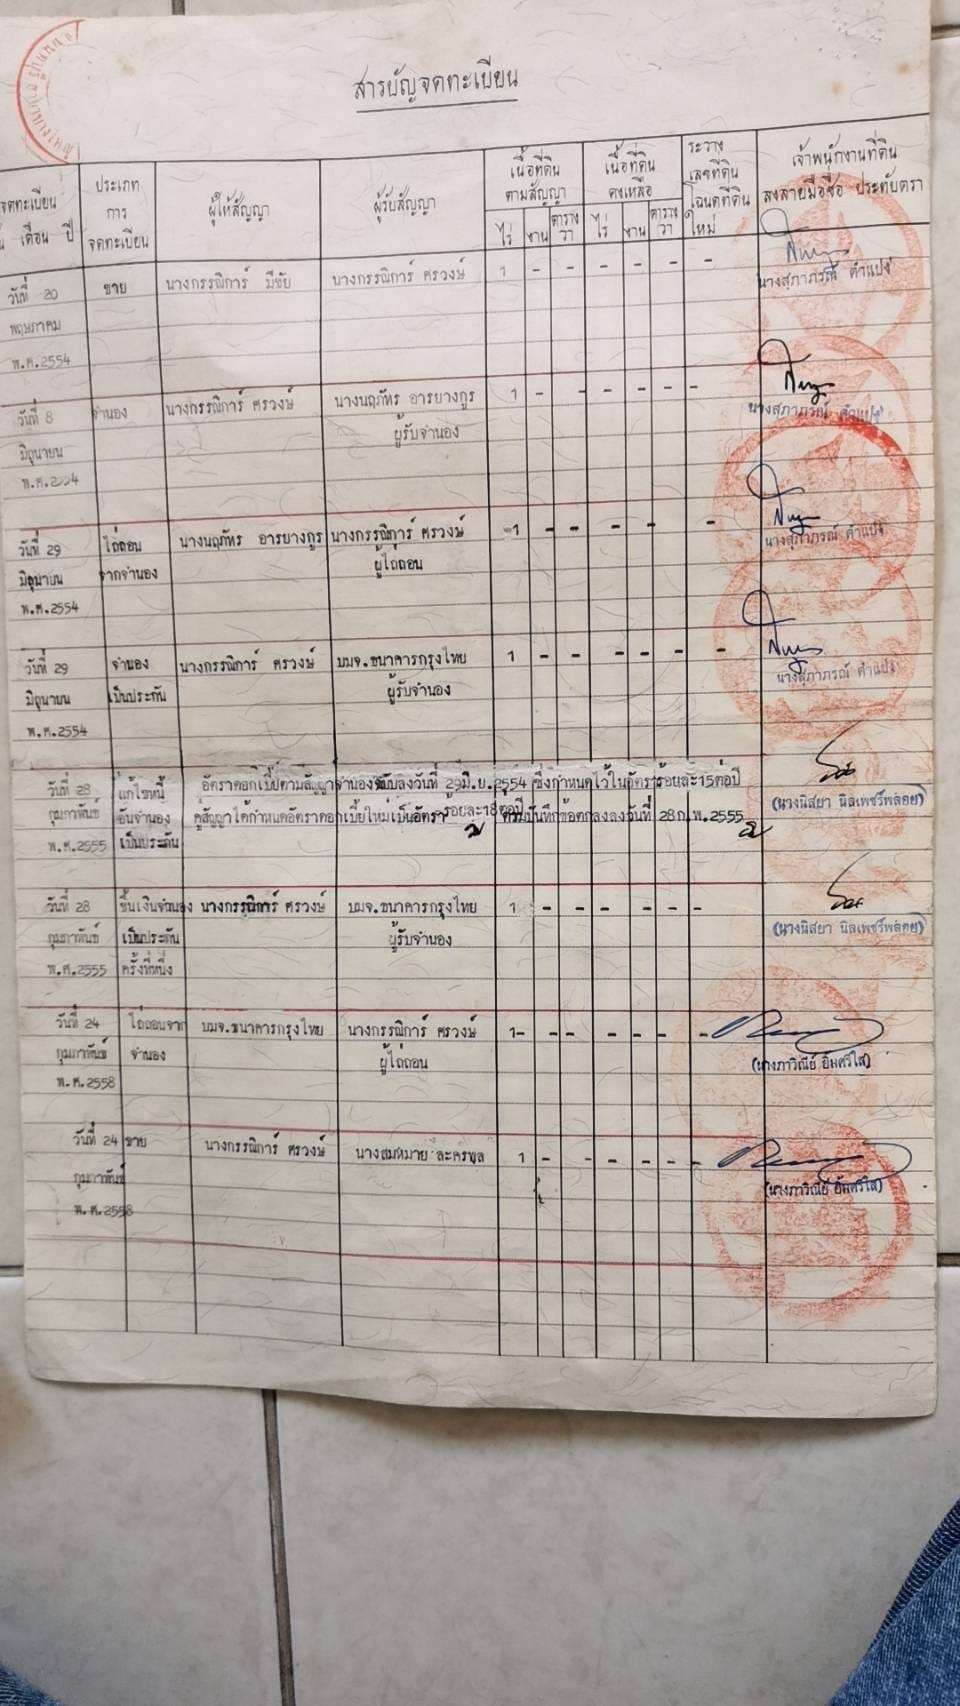 สารบัญจดทะเบียน
จดทะเบียน
เดือน ปี
ประเภท
การ
จดทะเบียน
ผู้ให้สัญญา
ผู้รับสัญญา
เนื้อที่ดิน
ตามสัญญา
ไร่ งาน ตาราง
วา
เนื้อที่ดิน
คงเหลือ
ไร่ งาน ตาราง
วา
ระวาง
เลขที่ดิน
โฉนดที่ดิน
ใหม่
เจ้าพนักงานที่ดิน
ลงลายมือชื่อ ประทับตรา
วันที่ 20 ขาย นางกรรณิการ์ มีชัย นางกรรณิการ์ ศรวงษ์ 1 - - - - - -
พฤษภาคม
พ.ศ.2554
นางสุภาภรณ์ คำแปง
วันที่ 8 จำนอง นางกรรณิการ์ ศรวงษ์ นางนฤภัทร อารยางกูร 1 - - - - - -
มิถุนายน ผู้รับจำนอง
พ.ศ.2554
นางสุภาภรณ์ คำแปง
วันที่ 29 ไถ่ถอน นางนฤภัทร อารยางกูร นางกรรณิการ์ ศรวงษ์ 1 - - - - -
มิถุนายน จากจำนอง ผู้ไถ่ถอน
พ.ศ.2554
นางสุภาภรณ์ คำแปง
วันที่ 29 จำนอง นางกรรณิการ์ ศรวงษ์ บมจ.ธนาคารกรุงไทย 1 - - - - - -
มิถุนายน เป็นประกัน ผู้รับจำนอง
พ.ศ.2554
นางสุภาภรณ์ คำแปง
วันที่ 28 แก้ไขหนี้ อัตราดอกเบี้ยตามสัญญาจำนองฉบับลงวันที่ 29มิ.ย.2554 ซึ่งกำหนดไว้ในอัตราร้อยละ15ต่อปี
กุมภาพันธ์ อันจำนอง คู่สัญญาได้กำหนดอัตราดอกเบี้ยใหม่เป็นอัตราร้อยละ18ต่อปี ตามบันทึกข้อตกลงลงวันที่ 28ก.พ.2555
พ.ศ.2555 เป็นประกัน
(นางนิสยา นิลเพชร์พลอย)
วันที่ 28 ขึ้นเงินจำนอง นางกรรณิการ์ ศรวงษ์ บมจ.ธนาคารกรุงไทย 1 - - - - - -
กุมภาพันธ์ เป็นประกัน ผู้รับจำนอง
พ.ศ.2555 ครั้งที่หนึ่ง
(นางนิสยา นิลเพชร์พลอย)
วันที่ 24 ไถ่ถอนจาก บมจ.ธนาคารกรุงไทย นางกรรณิการ์ ศรวงษ์ 1 - - - - - -
กุมภาพันธ์ จำนอง ผู้ไถ่ถอน
พ.ศ.2558
(นางภาวิณีย์ อิ่มศรีใส)
วันที่ 24 ขาย นางกรรณิการ์ ศรวงษ์ นางสมหมาย ละครพล 1 - - - - - -
กุมภาพันธ์
พ.ศ.2558
(นางภาวิณีย์ อิ่มศรีใส)